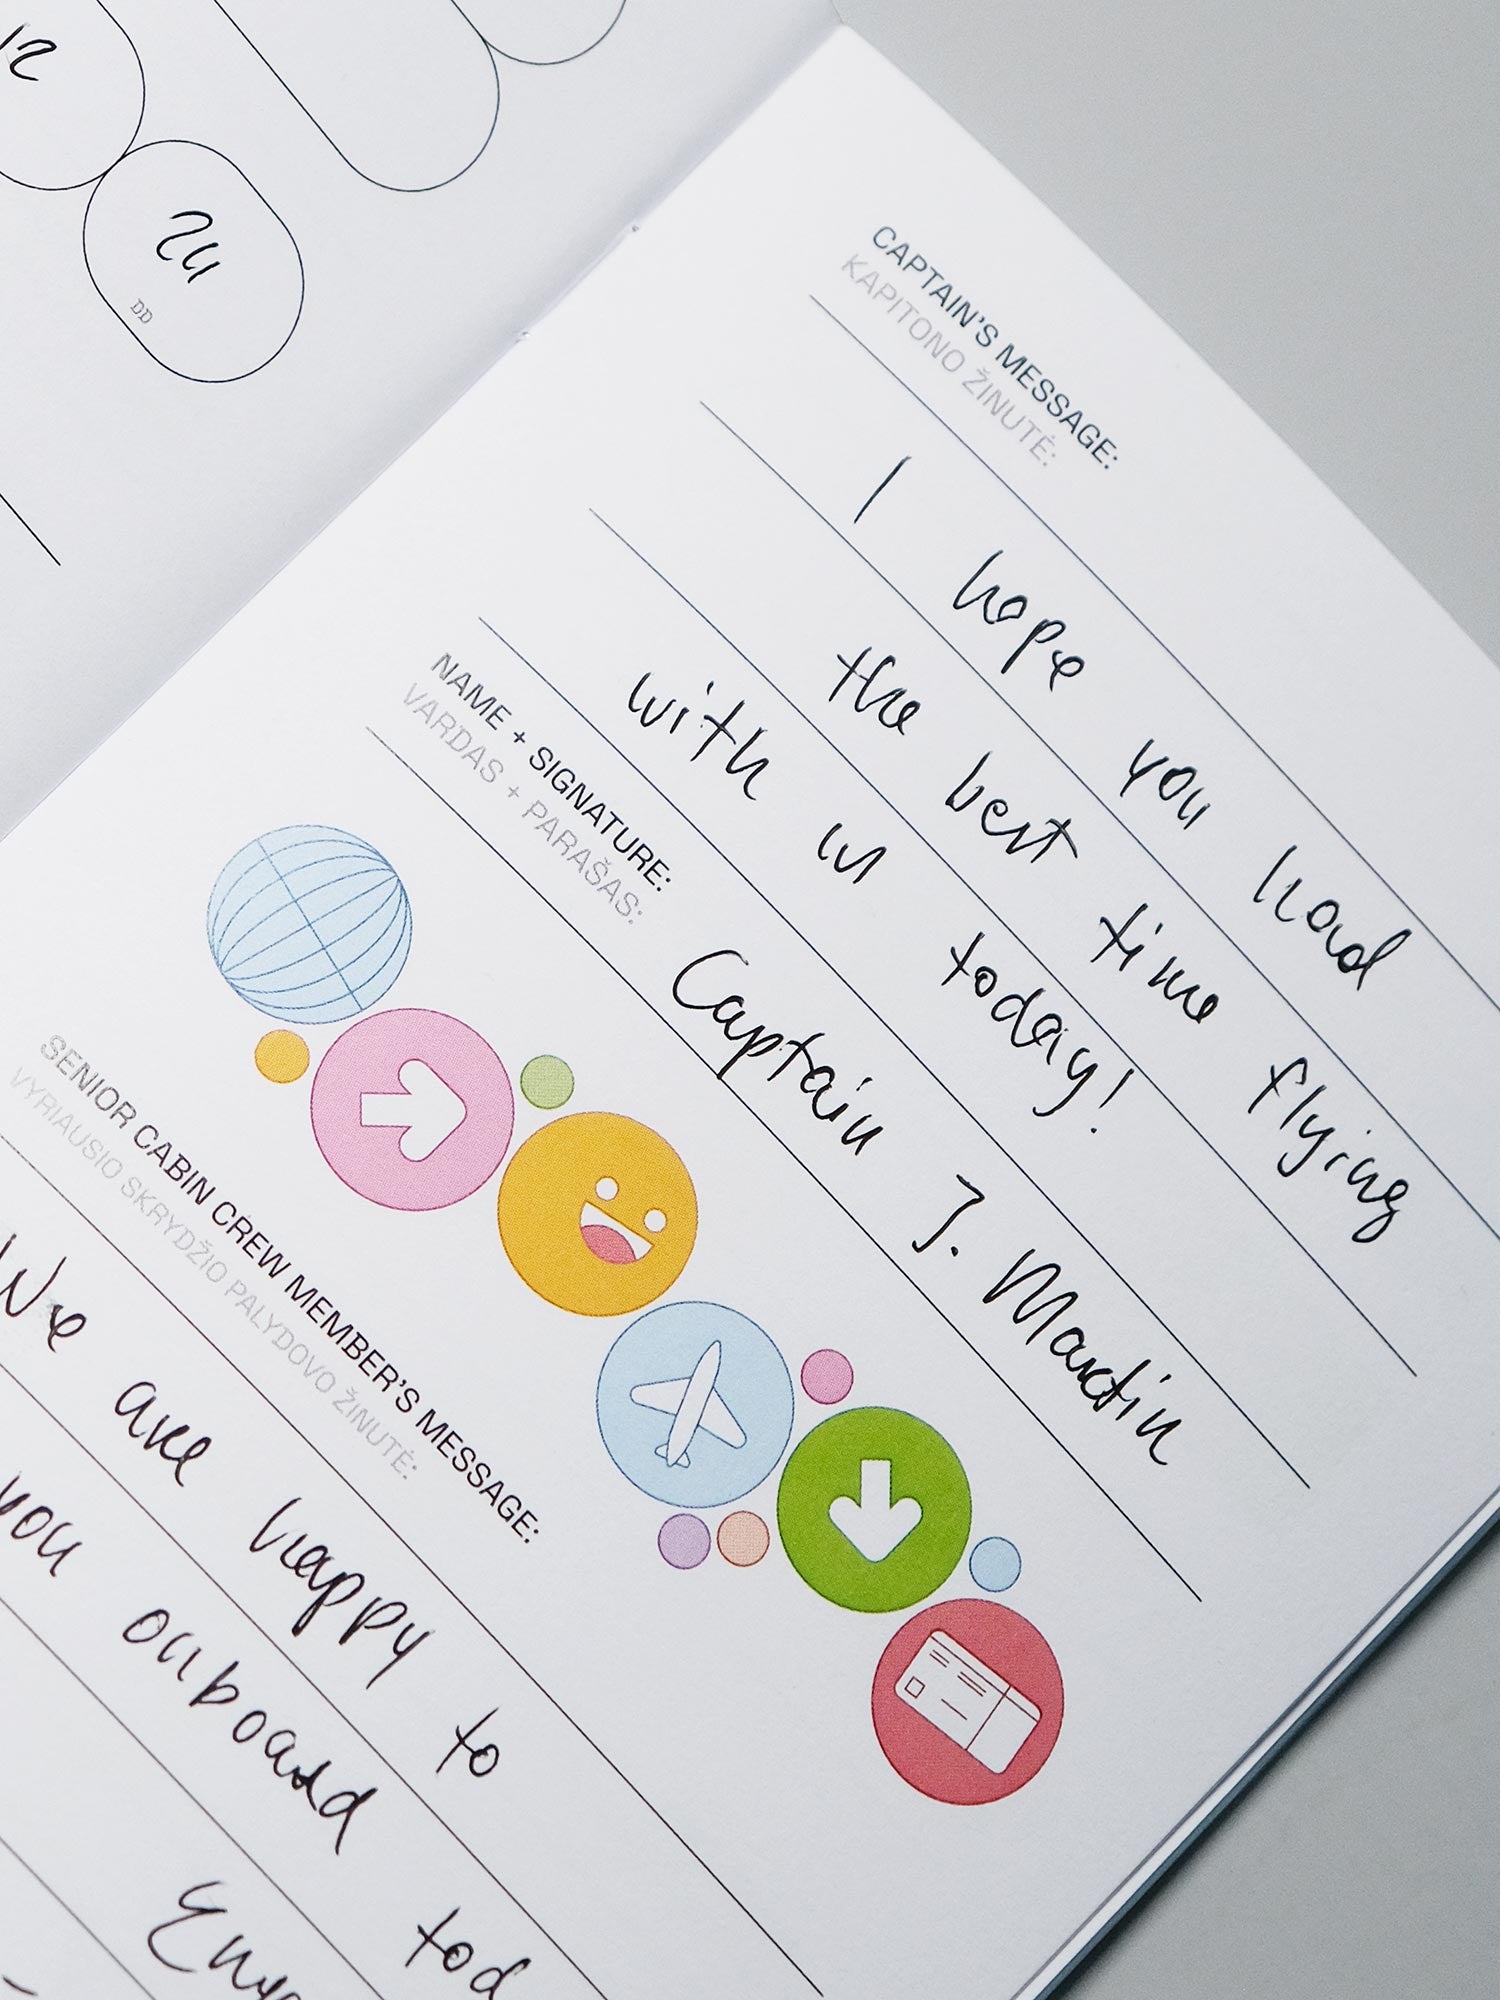 12
24
DD
CAPTAIN'S MESSAGE:
KAPITONO ŽINUTĖ:
I hope you had
the best time flying
with us today!
NAME + SIGNATURE:
VARDAS + PARAŠAS:
Captain J. Martin
SENIOR CABIN CREW MEMBER'S MESSAGE:
VYRIAUSIO SKRYDŽIO PALYDOVO ŽINUTĖ:
We are happy to
you onboard tod